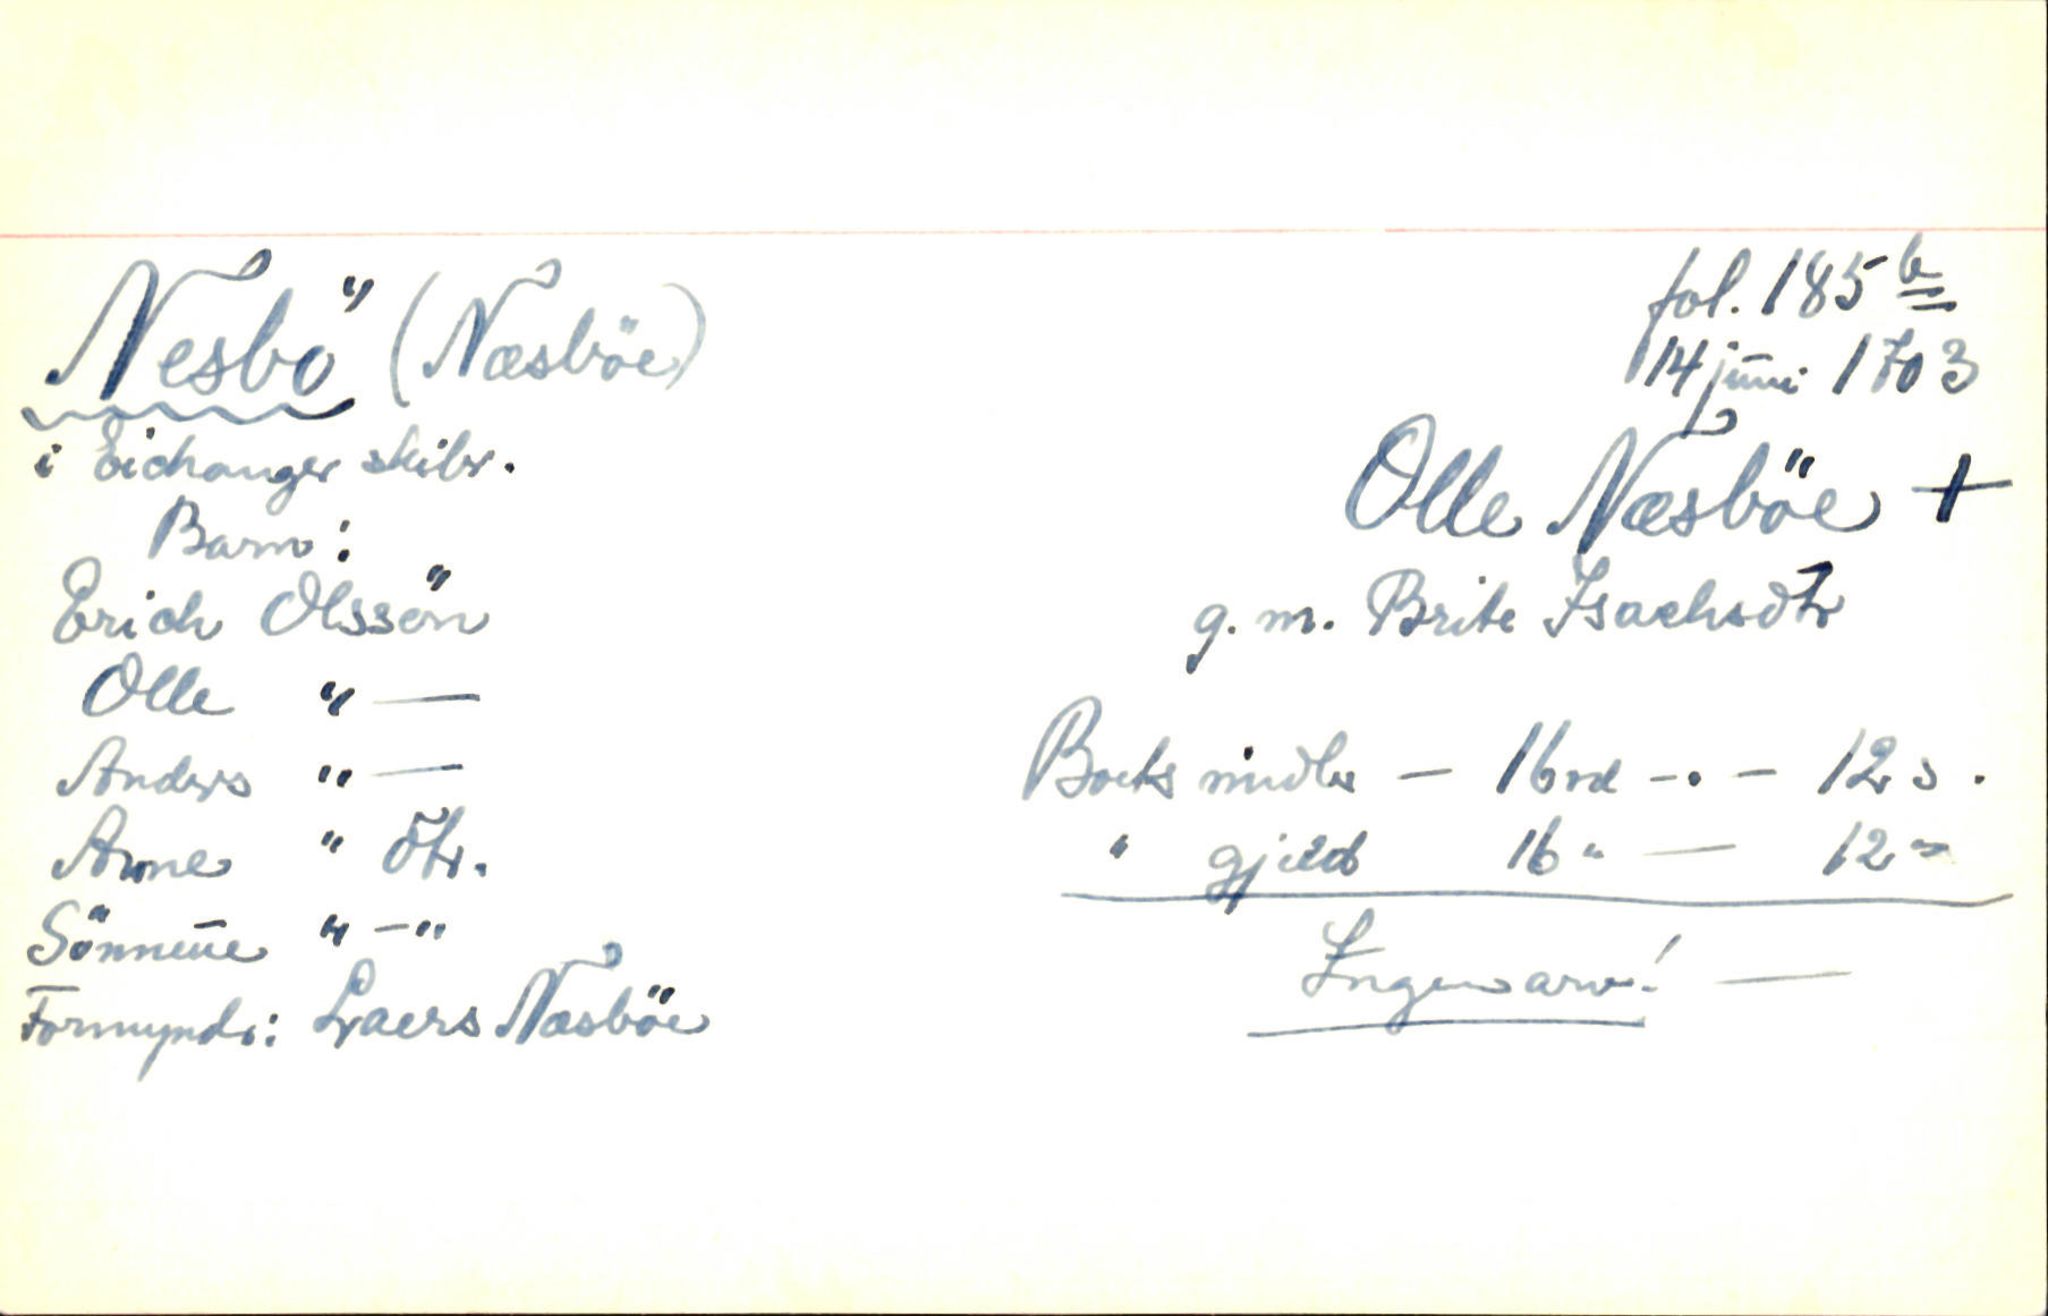 Nesbö (Næsböe)
i Eichanger skibr.
Barn:
Erich Olssön
Olle " —
Anders " —
Anne " dtr.
Sönneue " — "
Formyndr: Laers Næsböe
fol. 185 b
14 juni 1703
Olle Næsböe +
g. m. Brite Isachsdtr
Boets midler — 16 rd - . - 12 s.
" gjeld 16 " — 12 "
Ingen arv! —